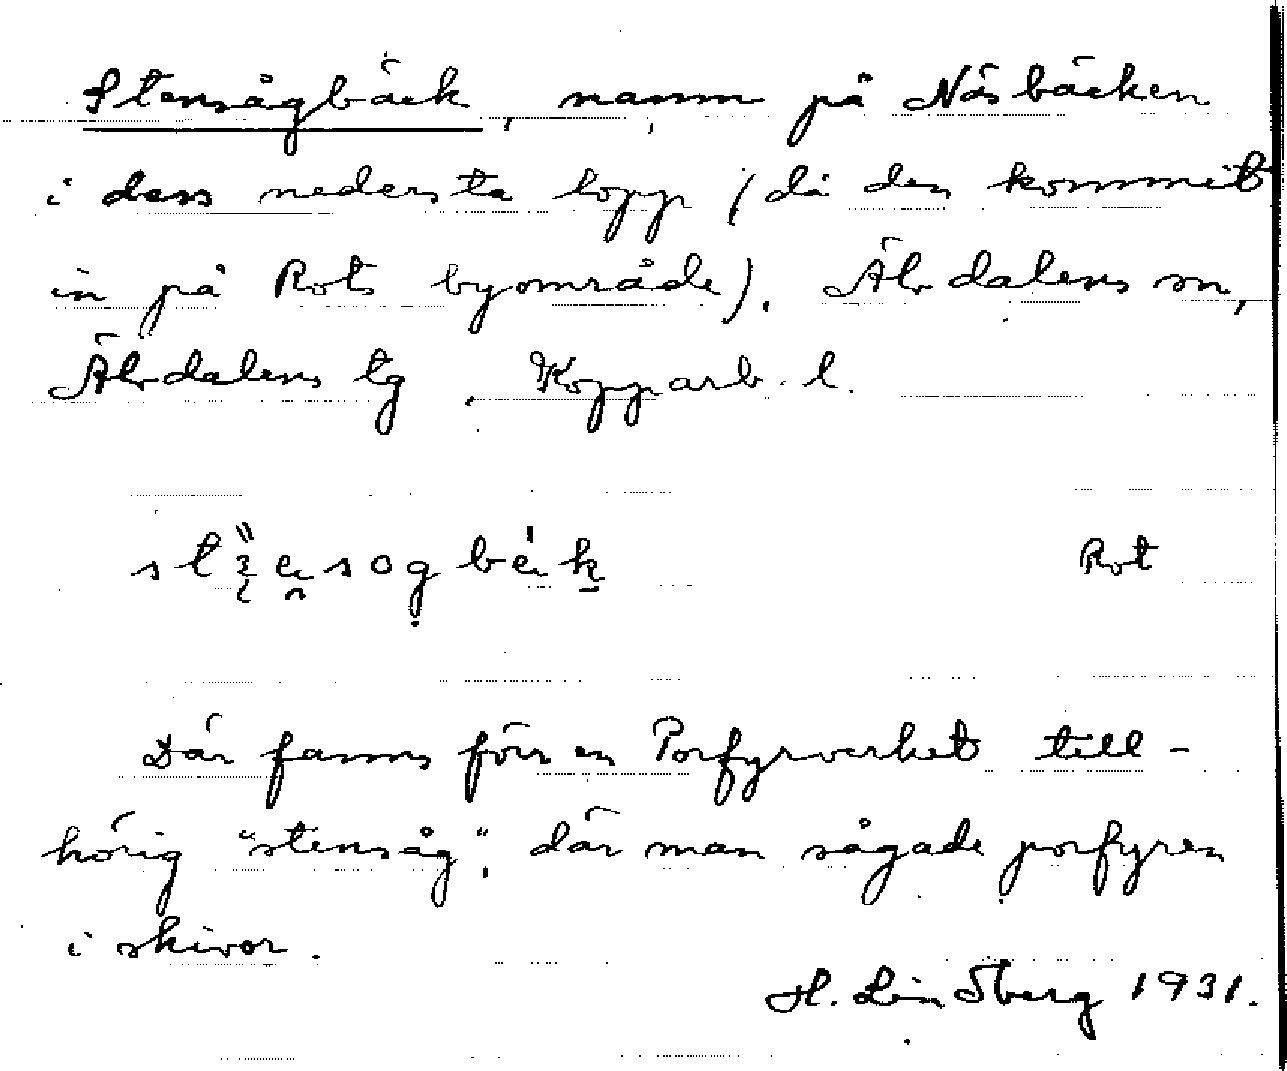 Stensågbäck, namn på Näsbäcken
i dess nedersta lopp (då den kommit
in på Rots byområde). Älvdalens sn,
Älvdalens tg, Kopparb. l.
Rot
Där fanns förr en Porfyrverket till-
hörig "stensåg", där man sågade porfyren
i skivor.
H. Lindberg 1931.